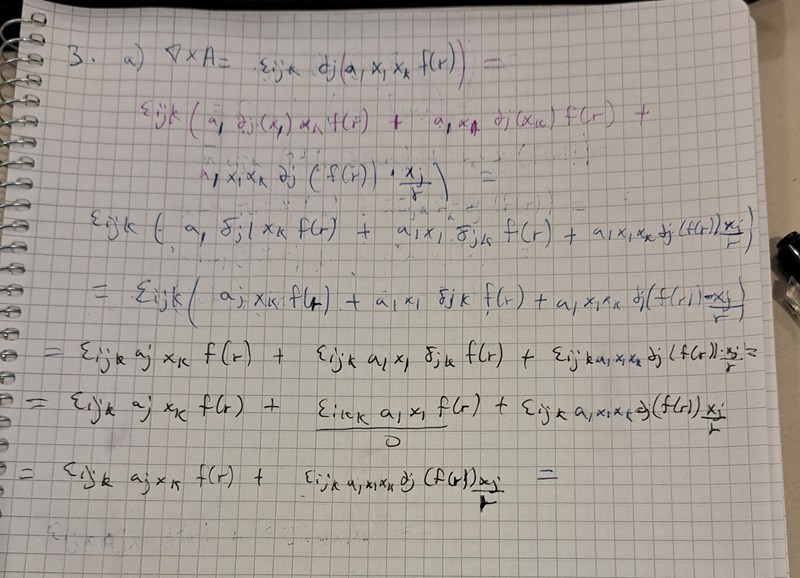 3. a) ∇×A = εijk ∂j(a₁x₁xk f(r)) =
εijk ( a₁ ∂j(x₁) xk f(r) + a₁x₁ ∂j(xk) f(r) +
a₁x₁xk ∂j (f(r)) · xj/r ) =
εijk ( a₁ δj1 xk f(r) + a₁x₁ δjk f(r) + a₁x₁xk ∂j (f(r)) xj/r )
= εijk ( aj xk f(r) + a₁x₁ δjk f(r) + a₁x₁xk ∂j(f(r)) · xj/r )
= εijk aj xk f(r) + εijk a₁x₁ δjk f(r) + εijk a₁x₁xk ∂j (f(r)) · xj/r =
= εijk aj xk f(r) + εikk a₁x₁ f(r) + εijk a₁x₁xk ∂j(f(r)) xj/r
0
= εijk aj xk f(r) + εijk a₁x₁xk ∂j (f(r)) xj/r =